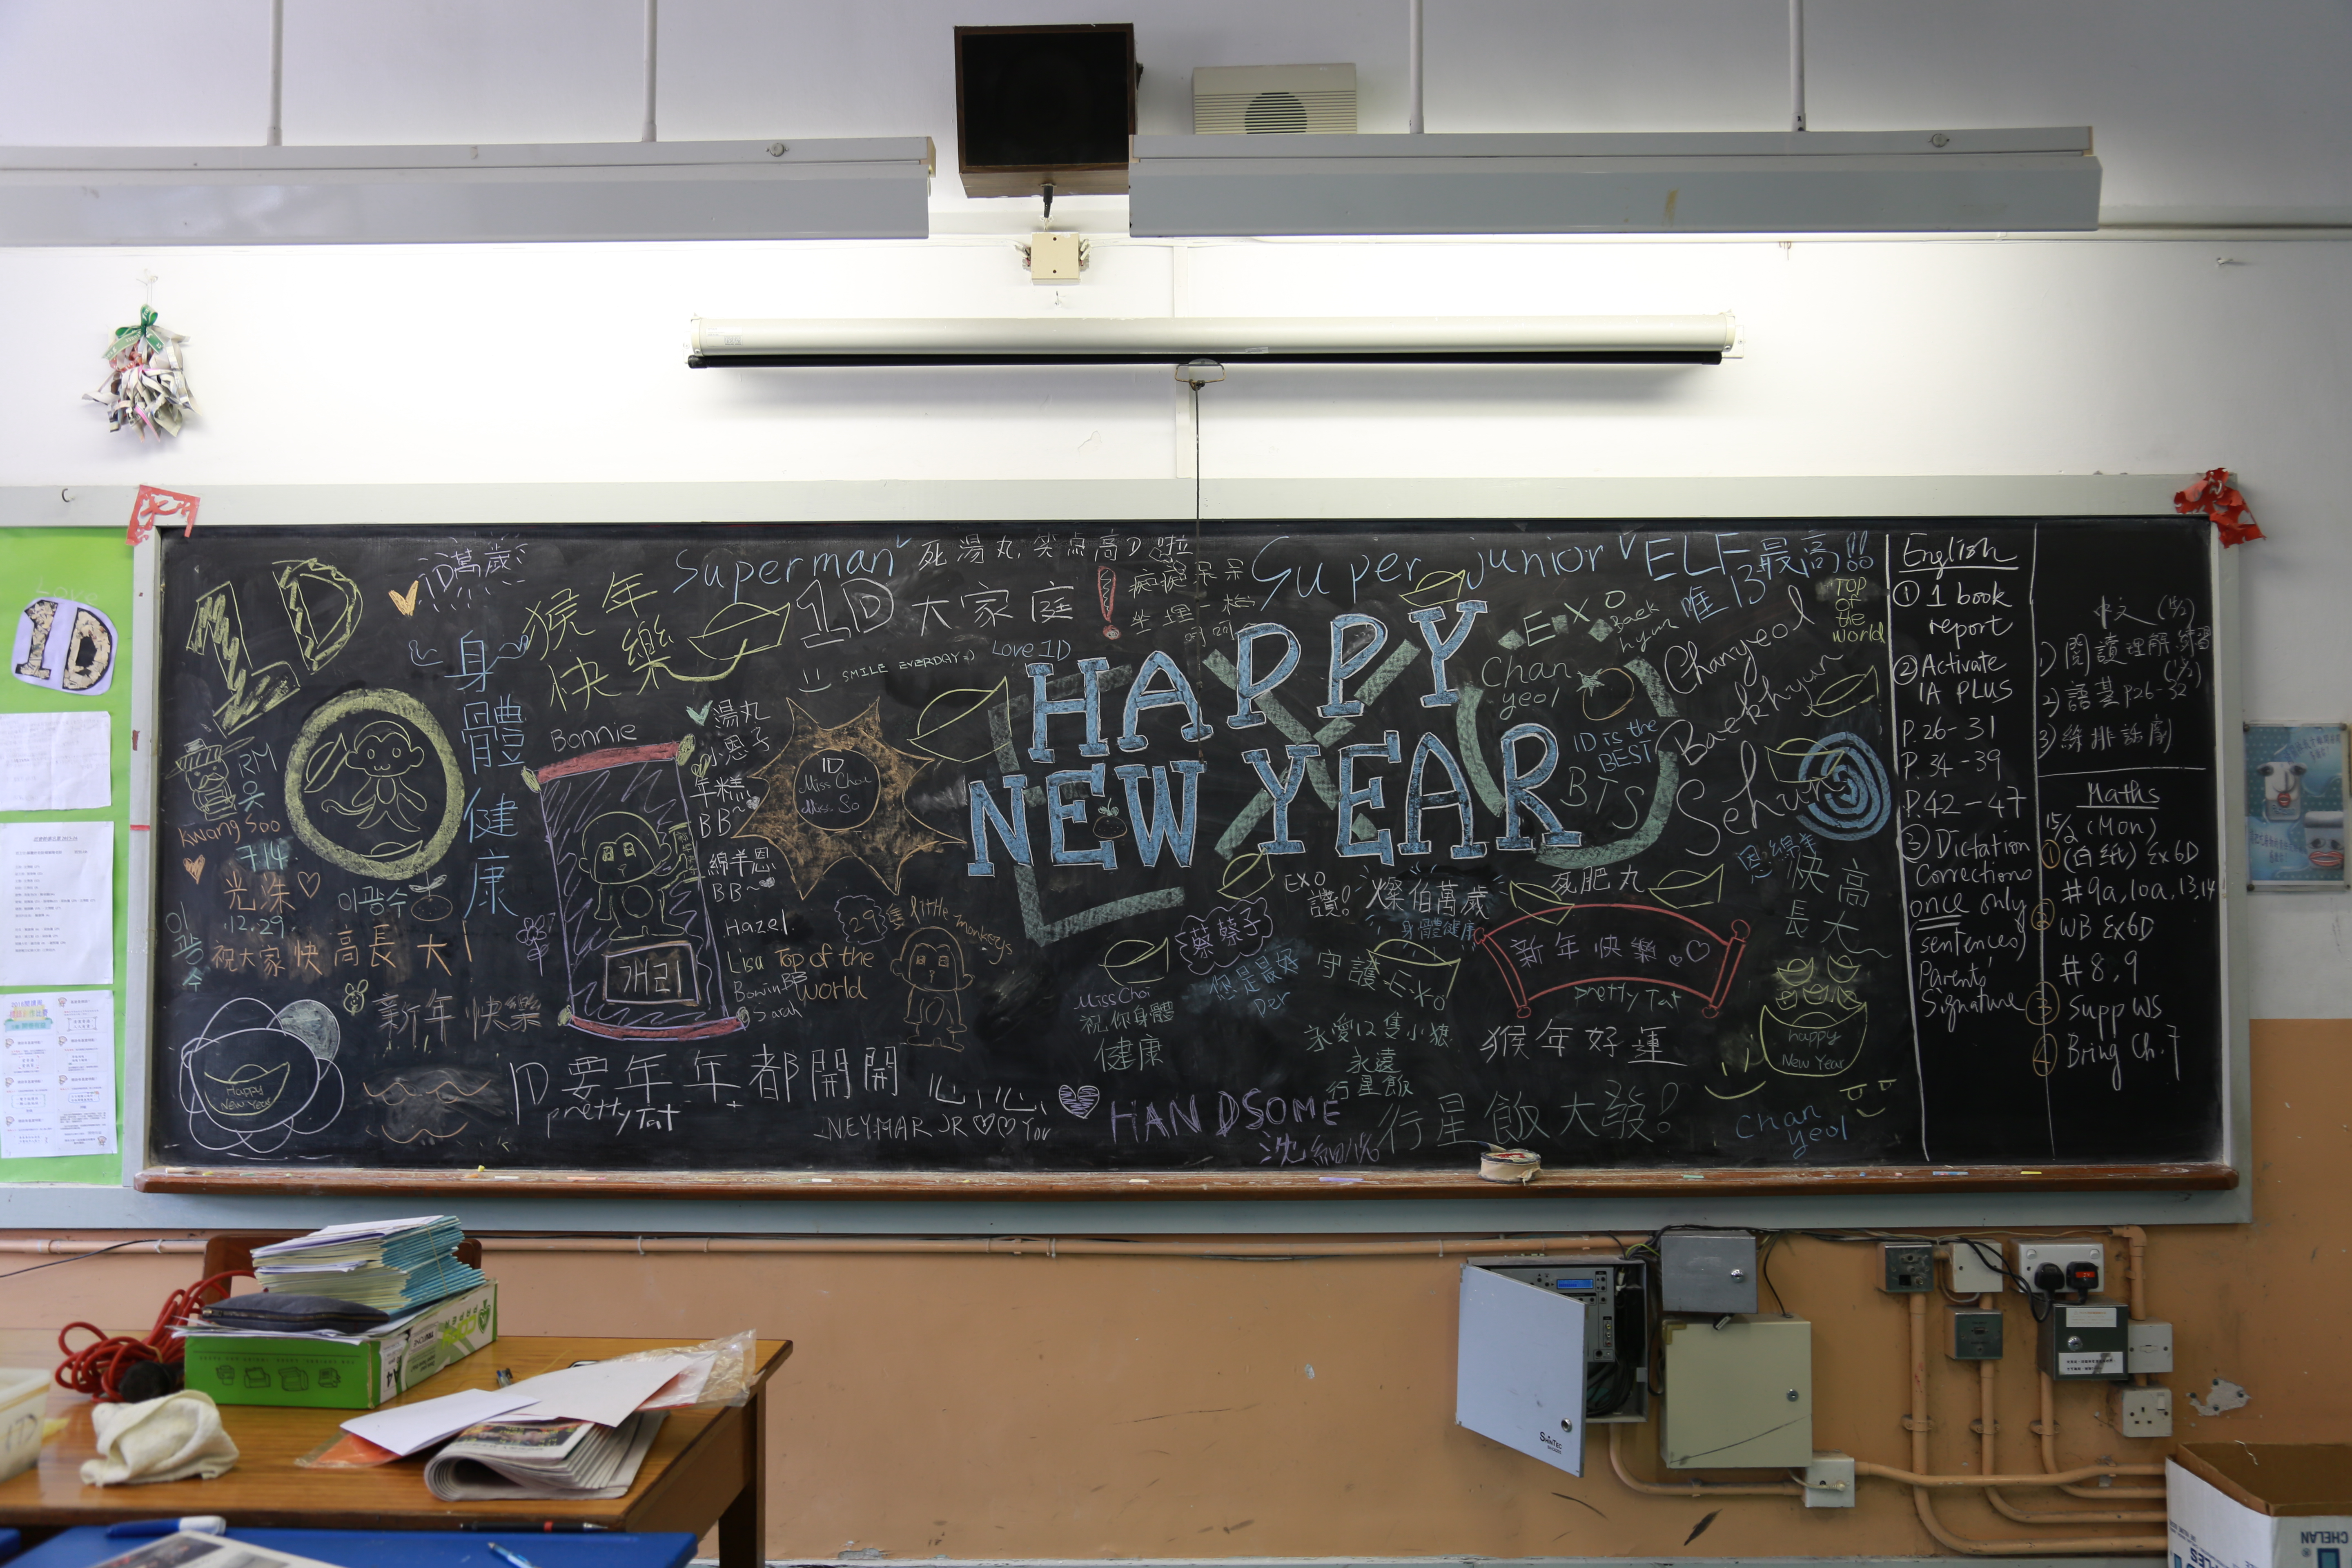 1D
1D萬歲
猴年
快樂
Superman
死湯丸, 笑点高D啦
1D大家庭
Love 1D
SMILE EVERDAY=)
Super junior
ELF最高!!
唯13
HAPPY
NEW YEAR
E·X·O
Baek
hyun
Chan
yeol
Chanyeol
Baekhyun
Sehun
TOP
of
the
World
1D is the
BEST
BTS
身
體
健
康
RM
Kwang Soo
714
光洙
12.29
이광수
이
광
수
祝大家快高長大!
新年快樂
Happy
New Year
Bonnie
개리
湯丸
小恩子
年糕
BB~
綿羊恩
BB~
Hazel
Lisa
Bowin BB
Sarah
1D
Miss Choi
Miss. So
Top of the
World
29隻 little monkeys
1D要年年都開開心心
prettyTat
NEYMAR JR ♡♡ You
HANDSOME
EXO
讚!
燦伯萬歲
身體健康
死肥丸
蔡蔡子
您是最好
Der
守護EXO
Miss Choi
祝你身體
健康
永遠
行星飯
行星飯大發!
新年快樂
prettyTat
猴年好運
快高
長大
happy
New Year
Chan
yeol
English
① 1 book
report
② Activate
1A PLUS
P.26-31
P.34-39
P.42-47
③ Dictation
Corrections
once only
(sentences)
Parents'
Signature
中文 (15/2)
1) 閱讀理解練習
2) 語基 P26-32
3) 綵排話劇
Maths
15/2 (Mon)
① (白紙) Ex6D
#9a, 10a, 13, 14
② WB Ex6D
#8, 9
③ Supp WS
④ Bring Ch.7
Love
1D
A4
SHINTEC
CHELAN